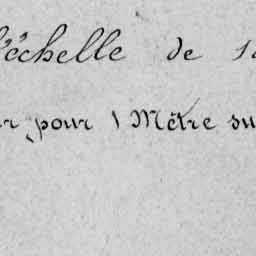 l'échelle de
pour 1 Mètre su